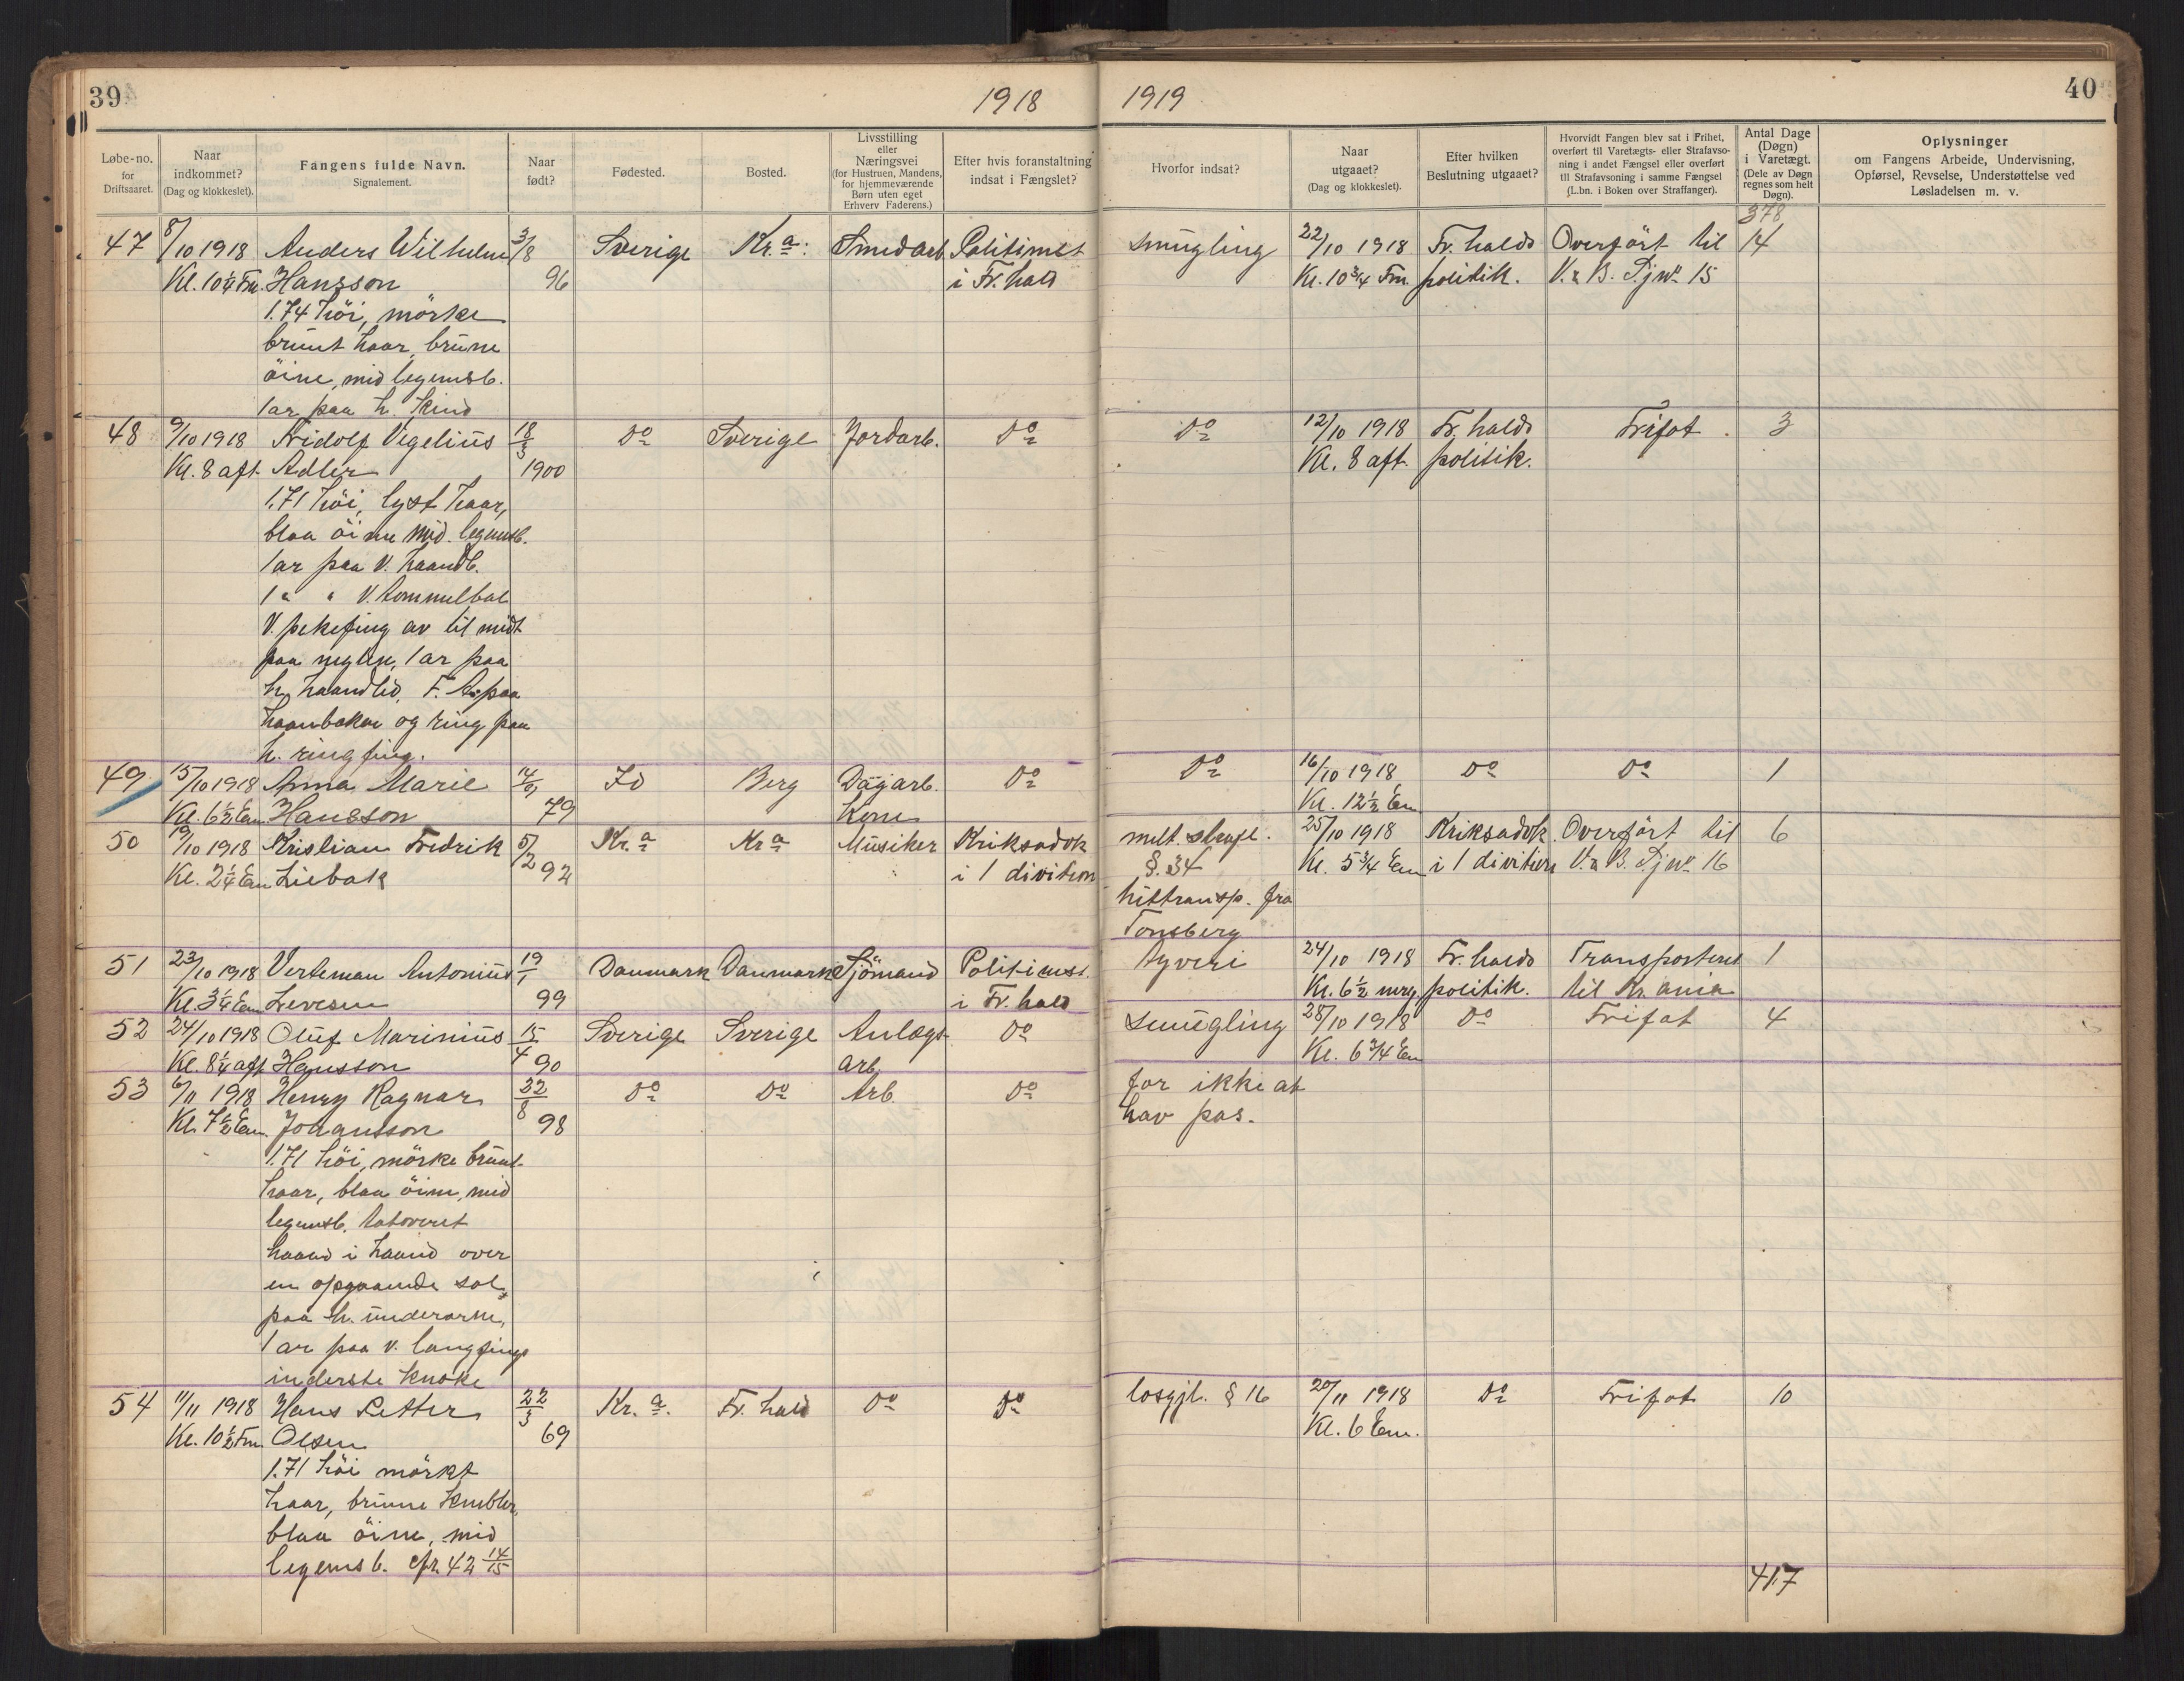 39
1918
Løbe-no.
for
Driftsaaret.
Naar
indkommet?
(Dag og klokkeslet).
Fangens fulde Navn.
Signalement.
Naar
født?
Fødested.
Bosted.
Livsstilling
eller
Næringsvei
(for Hustruen, Mandens,
for hjemmeværende
Børn uten eget
Erhverv Faderens.)
Efter hvis foranstaltning
indsat i Fængslet?
47 8/10 1918 Anders Wilhelm 3/8 Sverige Kr.a: Smedarb. Politimst
Kl. 10 1/4 Fm. Hansson 96 i Fr.hald
1.74 höi, mörke
brunt haar, brune
öine, mid legemsb.
1 ar paa h. kind
48 9/10 1918 Fridolf Vegelius 18/3 Do Sverige Jordarb. Do
Kl. 8 aft. Adler 1900
1.71 höi, lyst haar,
blaa öine mid. legemsb.
1 ar paa V. haandb.
1 " " V. tommelbal
V. pekefing av til midt
paa neglen, 1 ar paa
h. haandled, F. A. paa
haanbaken og ring paa
h. ringfing.
49 15/10 1918 Anna Marie 14/9 Id Berg Dagarb. Do
Kl. 6 1/2 Em Hansson 79 Kone
50 19/10 1918 Kristian Fredrik 5/2 Kr.a Kr.a Musiker Kriksadvk
Kl. 2 1/4 Em Liebak 92 i 1 divition
51 23/10 1918 Verteman Antonius 19/1 Danmark Danmark Sjömand Politimst.
Kl. 3 1/4 Em Levesen 99 i Fr.hald
52 24/10 1918 Oluf Marinius 15/4 Sverige Sverige Anlægs- Do
Kl. 8 1/4 aft Hansson 90 arb.
53 6/11 1918 Henry Ragnar 22/8 Do Do Arb. Do
Kl. 7 1/2 Em. Johansson 98
1.71 höi, mörke brunt
haar, blaa öine, mid
legemsb. tatoveret
haand i haand over
en opgaande sol,
paa h. underarm,
1 ar paa v. langfings
inderste knoke
54 11/11 1918 Hans Petter 22/3 Kr.a. Fr.hald Do Do
Kl. 10 1/2 Fm. Olsen 69
1.71 höi mörkt
haar, brune
blaa öine, mid
legemsb. cfr. 42 14/15
1919
40
Hvorfor indsat?
Naar
utgaaet?
(Dag og klokkeslet).
Efter hvilken
Beslutning utgaaet?
Hvorvidt Fangen blev sat i Frihet,
overført til Varetægts- eller Strafavso-
ning i andet Fængsel eller overført
til Strafavsoning i samme Fængsel
(L.bn. i Boken over Straffanger).
Antal Dage
(Døgn)
i Varetægt.
(Dele av Døgn
regnes som helt
Døgn).
Oplysninger
om Fangens Arbeide, Undervisning,
Opførsel, Revselse, Understøttelse ved
Løsladelsen m. v.
378
smugling 22/10 1918 Fr.halds Overfört til 14
Kl. 10 3/4 Fm. politik. V. & B. Fj No 15
Do 12/10 1918 Fr.halds Frifot. 3
Kl. 8 aft. politik.
Do 16/10 1918 Do Do 1
Kl. 12 1/2 Em
melt. strafl. 25/10 1918 Kriksadvk. Overfört til 6
§. 34 Kl. 5 3/4 Em i 1 divition V. & B. Fj No 16
hittransp. fra
Tönsberg
Tyveri 24/10 1918 Fr.halds Transporteret 1
Kl. 6 1/2 morg politik. til Kr.ania
Smugling 28/10 1918 Do Frifot 4
Kl. 6 3/4 Em
for ikke at
hav pas.
losgjl. § 16 20/11 1918 Do Frifot 10
Kl. 6 Em.
417